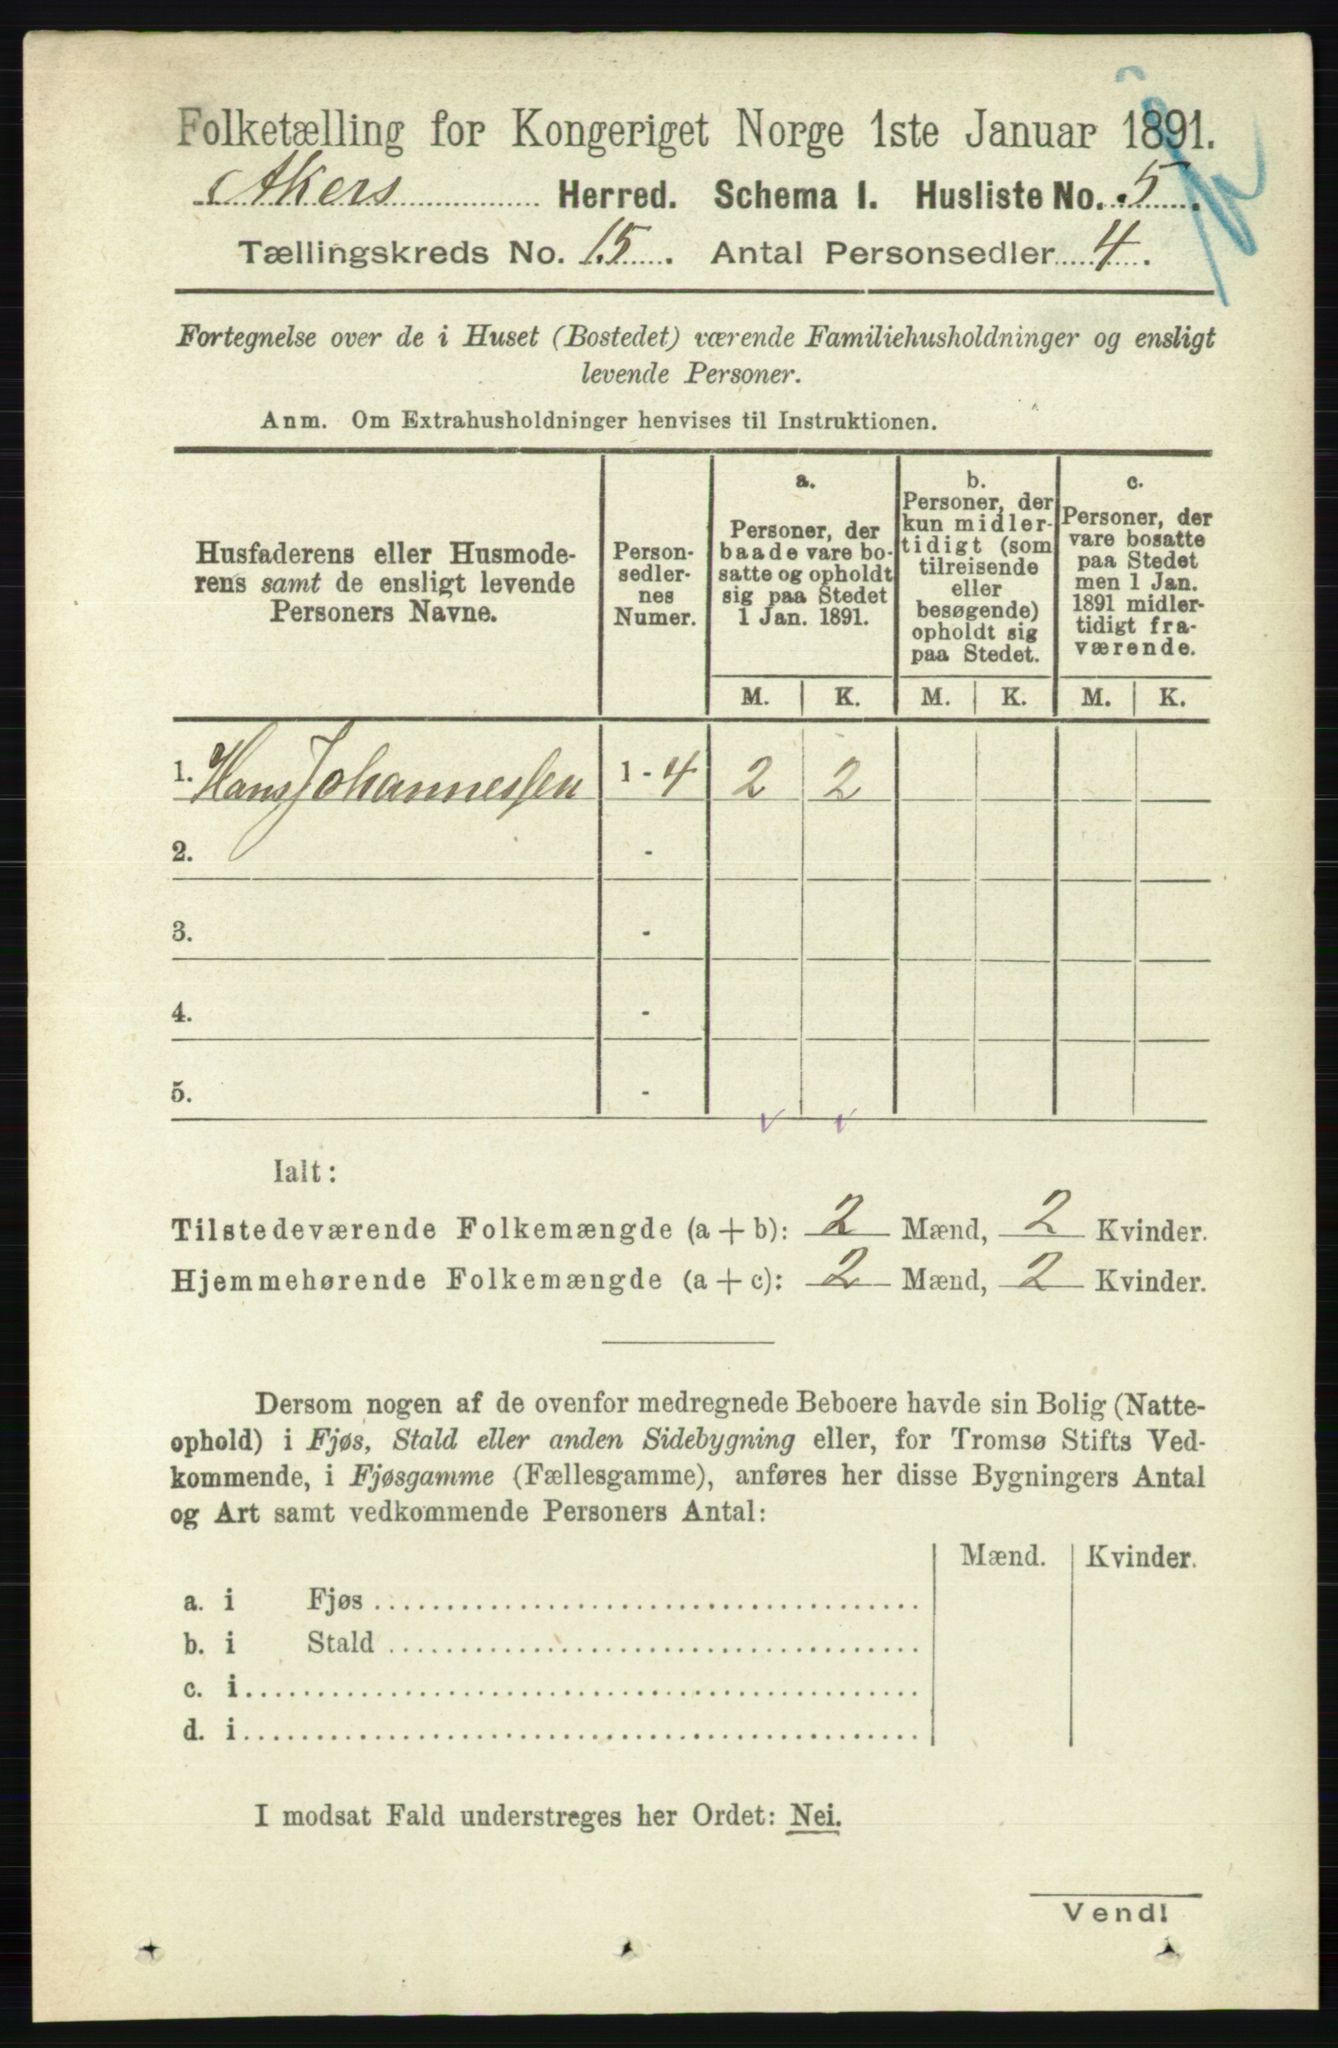 Folketælling for Kongeriget Norge 1ste Januar 1891.
Akers Herred. Schema I. Husliste No. 5.
Tællingskreds No. 15. Antal Personsedler 4.
Fortegnelse over de i Huset (Bostedet) værende Familiehusholdninger og ensligt
levende Personer.
Anm. Om Extrahusholdninger henvises til Instruktionen.
Husfaderens eller Husmode-
rens samt de ensligt levende
Personers Navne.
Person-
sedler-
nes
Numer.
a.
Personer, der
baade vare bo-
satte og opholdt
sig paa Stedet
1 Jan. 1891.
b.
Personer, der
kun midler-
tidigt (som
tilreisende
eller
besøgende)
opholdt sig
paa Stedet.
c.
Personer, der
vare bosatte
paa Stedet
men 1 Jan.
1891 midler-
tidigt fra-
værende.
M. K. M. K. M. K.
1. Hans Johannessen 1 - 4 2 2
2. -
3. -
4. -
5. -
Ialt:
Tilstedeværende Folkemængde (a + b): 2 Mænd, 2 Kvinder.
Hjemmehørende Folkemængde (a + c): 2 Mænd, 2 Kvinder.
Dersom nogen af de ovenfor medregnede Beboere havde sin Bolig (Natte-
ophold) i Fjøs, Stald eller anden Sidebygning eller, for Tromsø Stifts Ved-
kommende, i Fjøsgamme (Fællesgamme), anføres her disse Bygningers Antal
og Art samt vedkommende Personers Antal:
Mænd. Kvinder.
a. i Fjøs
b. i Stald
c. i
d. i
I modsat Fald understreges her Ordet: Nei.
Vend!